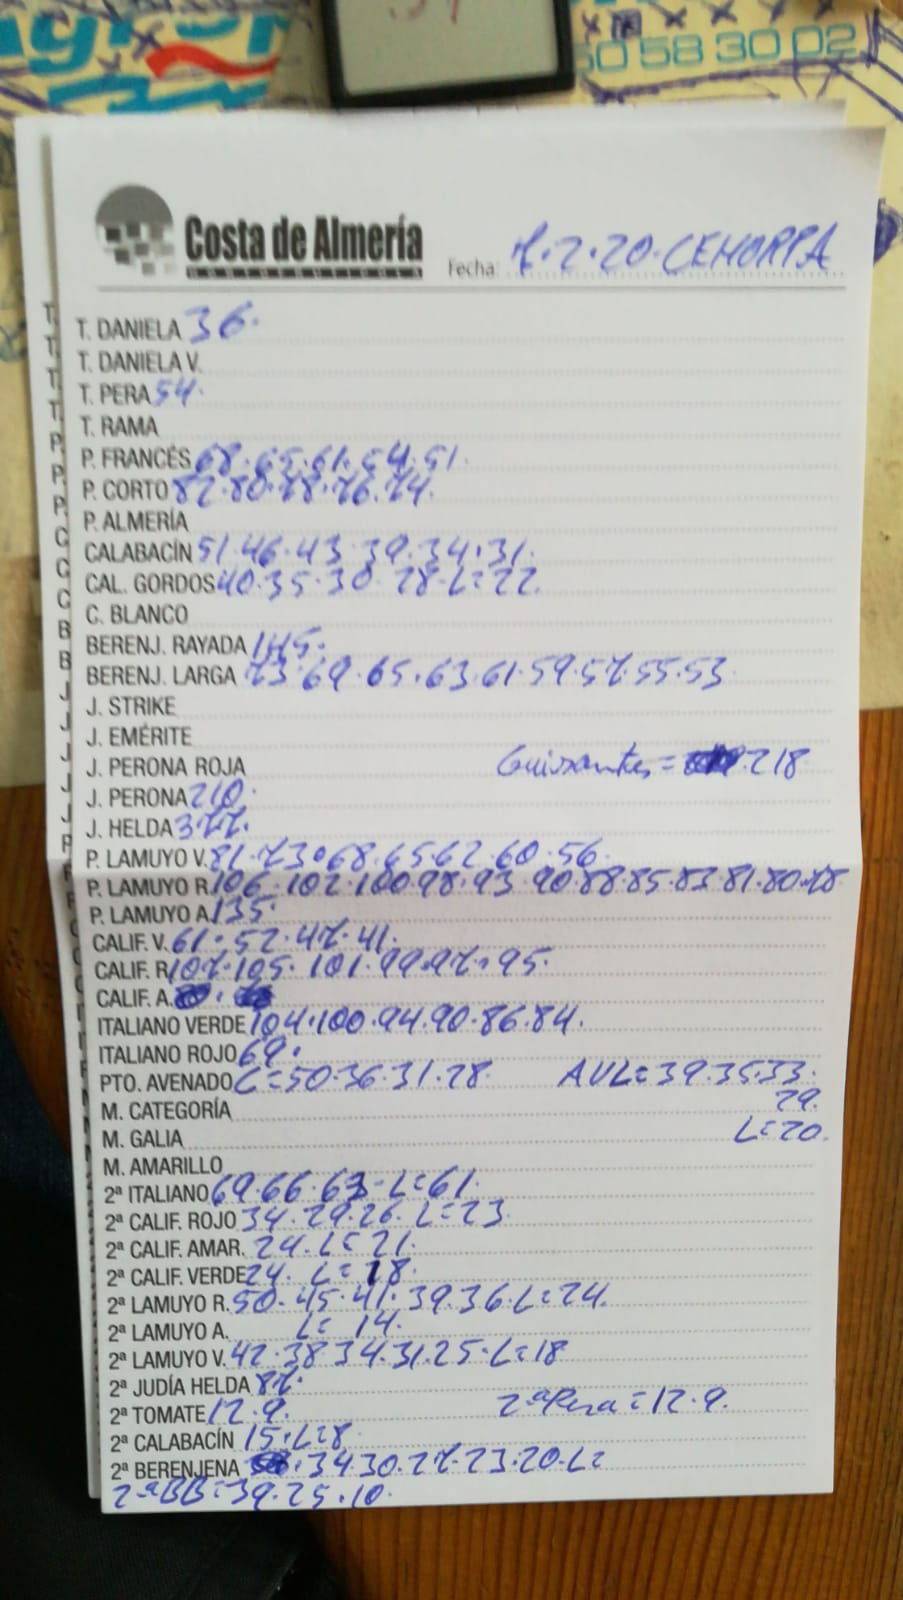 50 58 30 02
Costa de Almería
Fecha: 7.2.20. CEHORPA
T. DANIELA 36.
T. DANIELA V.
T. PERA 54.
T. RAMA
P. FRANCÉS 68.65.61.54.51.
P. CORTO 82.80.78.76.74.
P. ALMERÍA
CALABACÍN 51.46.43.39.34.31.
CAL. GORDOS 40.35.30.28.L=22.
C. BLANCO
BERENJ. RAYADA 145.
BERENJ. LARGA 73.69.65.63.61.59.57.55.53
J. STRIKE
J. EMÉRITE
J. PERONA ROJA Guisantes = 218
J. PERONA 210.
J. HELDA 377.
P. LAMUYO V. 81.73.68.65.62.60.56.
P. LAMUYO R. 106.102.100.98.93.90.88.85.83.81.80.78
P. LAMUYO A. 135.
CALIF. V. 61.52.47.41.
CALIF. R. 107.105.101.99.97.95.
CALIF. A.
ITALIANO VERDE 104.100.94.90.86.84.
ITALIANO ROJO 69.
PTO. AVENADO L=50.36.31.28 AVL=39.35.33.
M. CATEGORÍA 29.
M. GALIA L=20.
M. AMARILLO
2ª ITALIANO 69.66.63-L=61.
2ª CALIF. ROJO 34.29.26. L=23
2ª CALIF. AMAR. 24. L=21.
2ª CALIF. VERDE 24. L=18.
2ª LAMUYO R. 50.45.41.39.36.L=24.
2ª LAMUYO A. L= 14.
2ª LAMUYO V. 42.38.34.31.25.L=18
2ª JUDÍA HELDA 87.
2ª TOMATE 12.9. 2ªPera=12.9.
2ª CALABACÍN 15.L=8
2ª BERENJENA .34.30.27.23.20.L=
2ªBB=39.25.10.